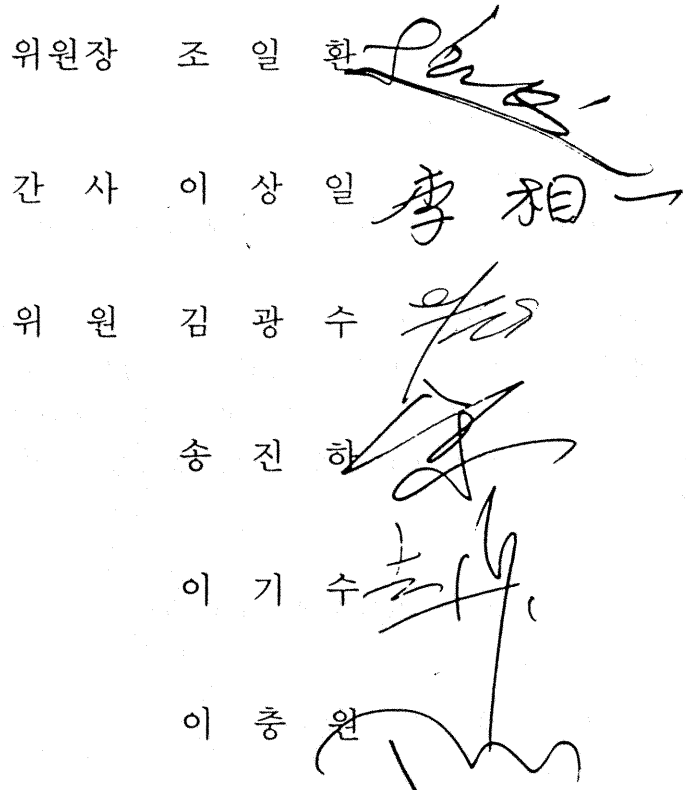 위원장 조 일 환
간 사 이 상 일 李 相 一
위 원 김 광 수
송 진 하
이 기 수
이 충 원